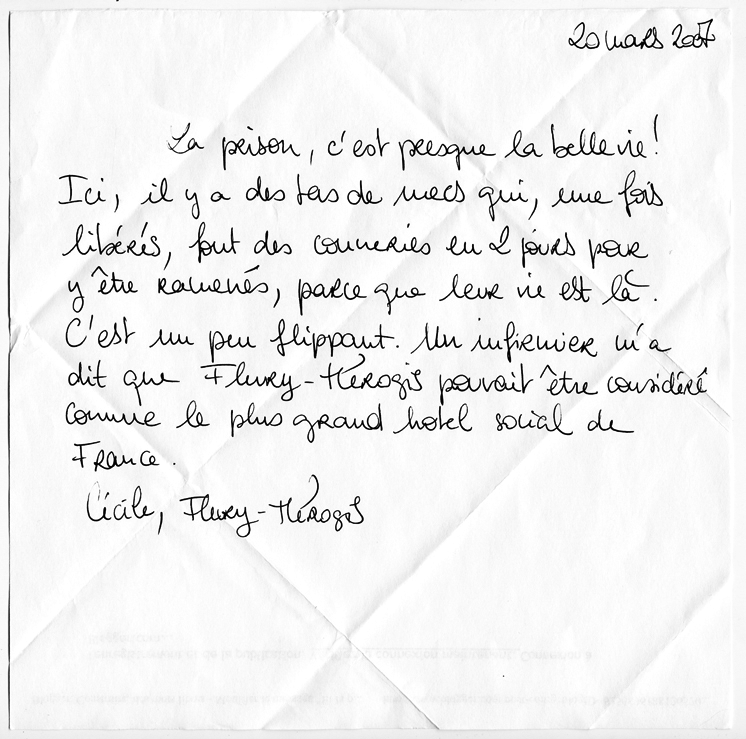 20 mars 2007
La prison, c'est presque la belle vie!
Ici, il y a des tas de mecs qui, une fois
libérés, font des conneries en 2 jours pour
y être ramenés, parce que leur vie est là.
C'est un peu flippant. Un infirmier m'a
dit que Fleury-Mérogis pouvait être considéré
comme le plus grand hotel social de
France.
Cécile, Fleury-Mérogis